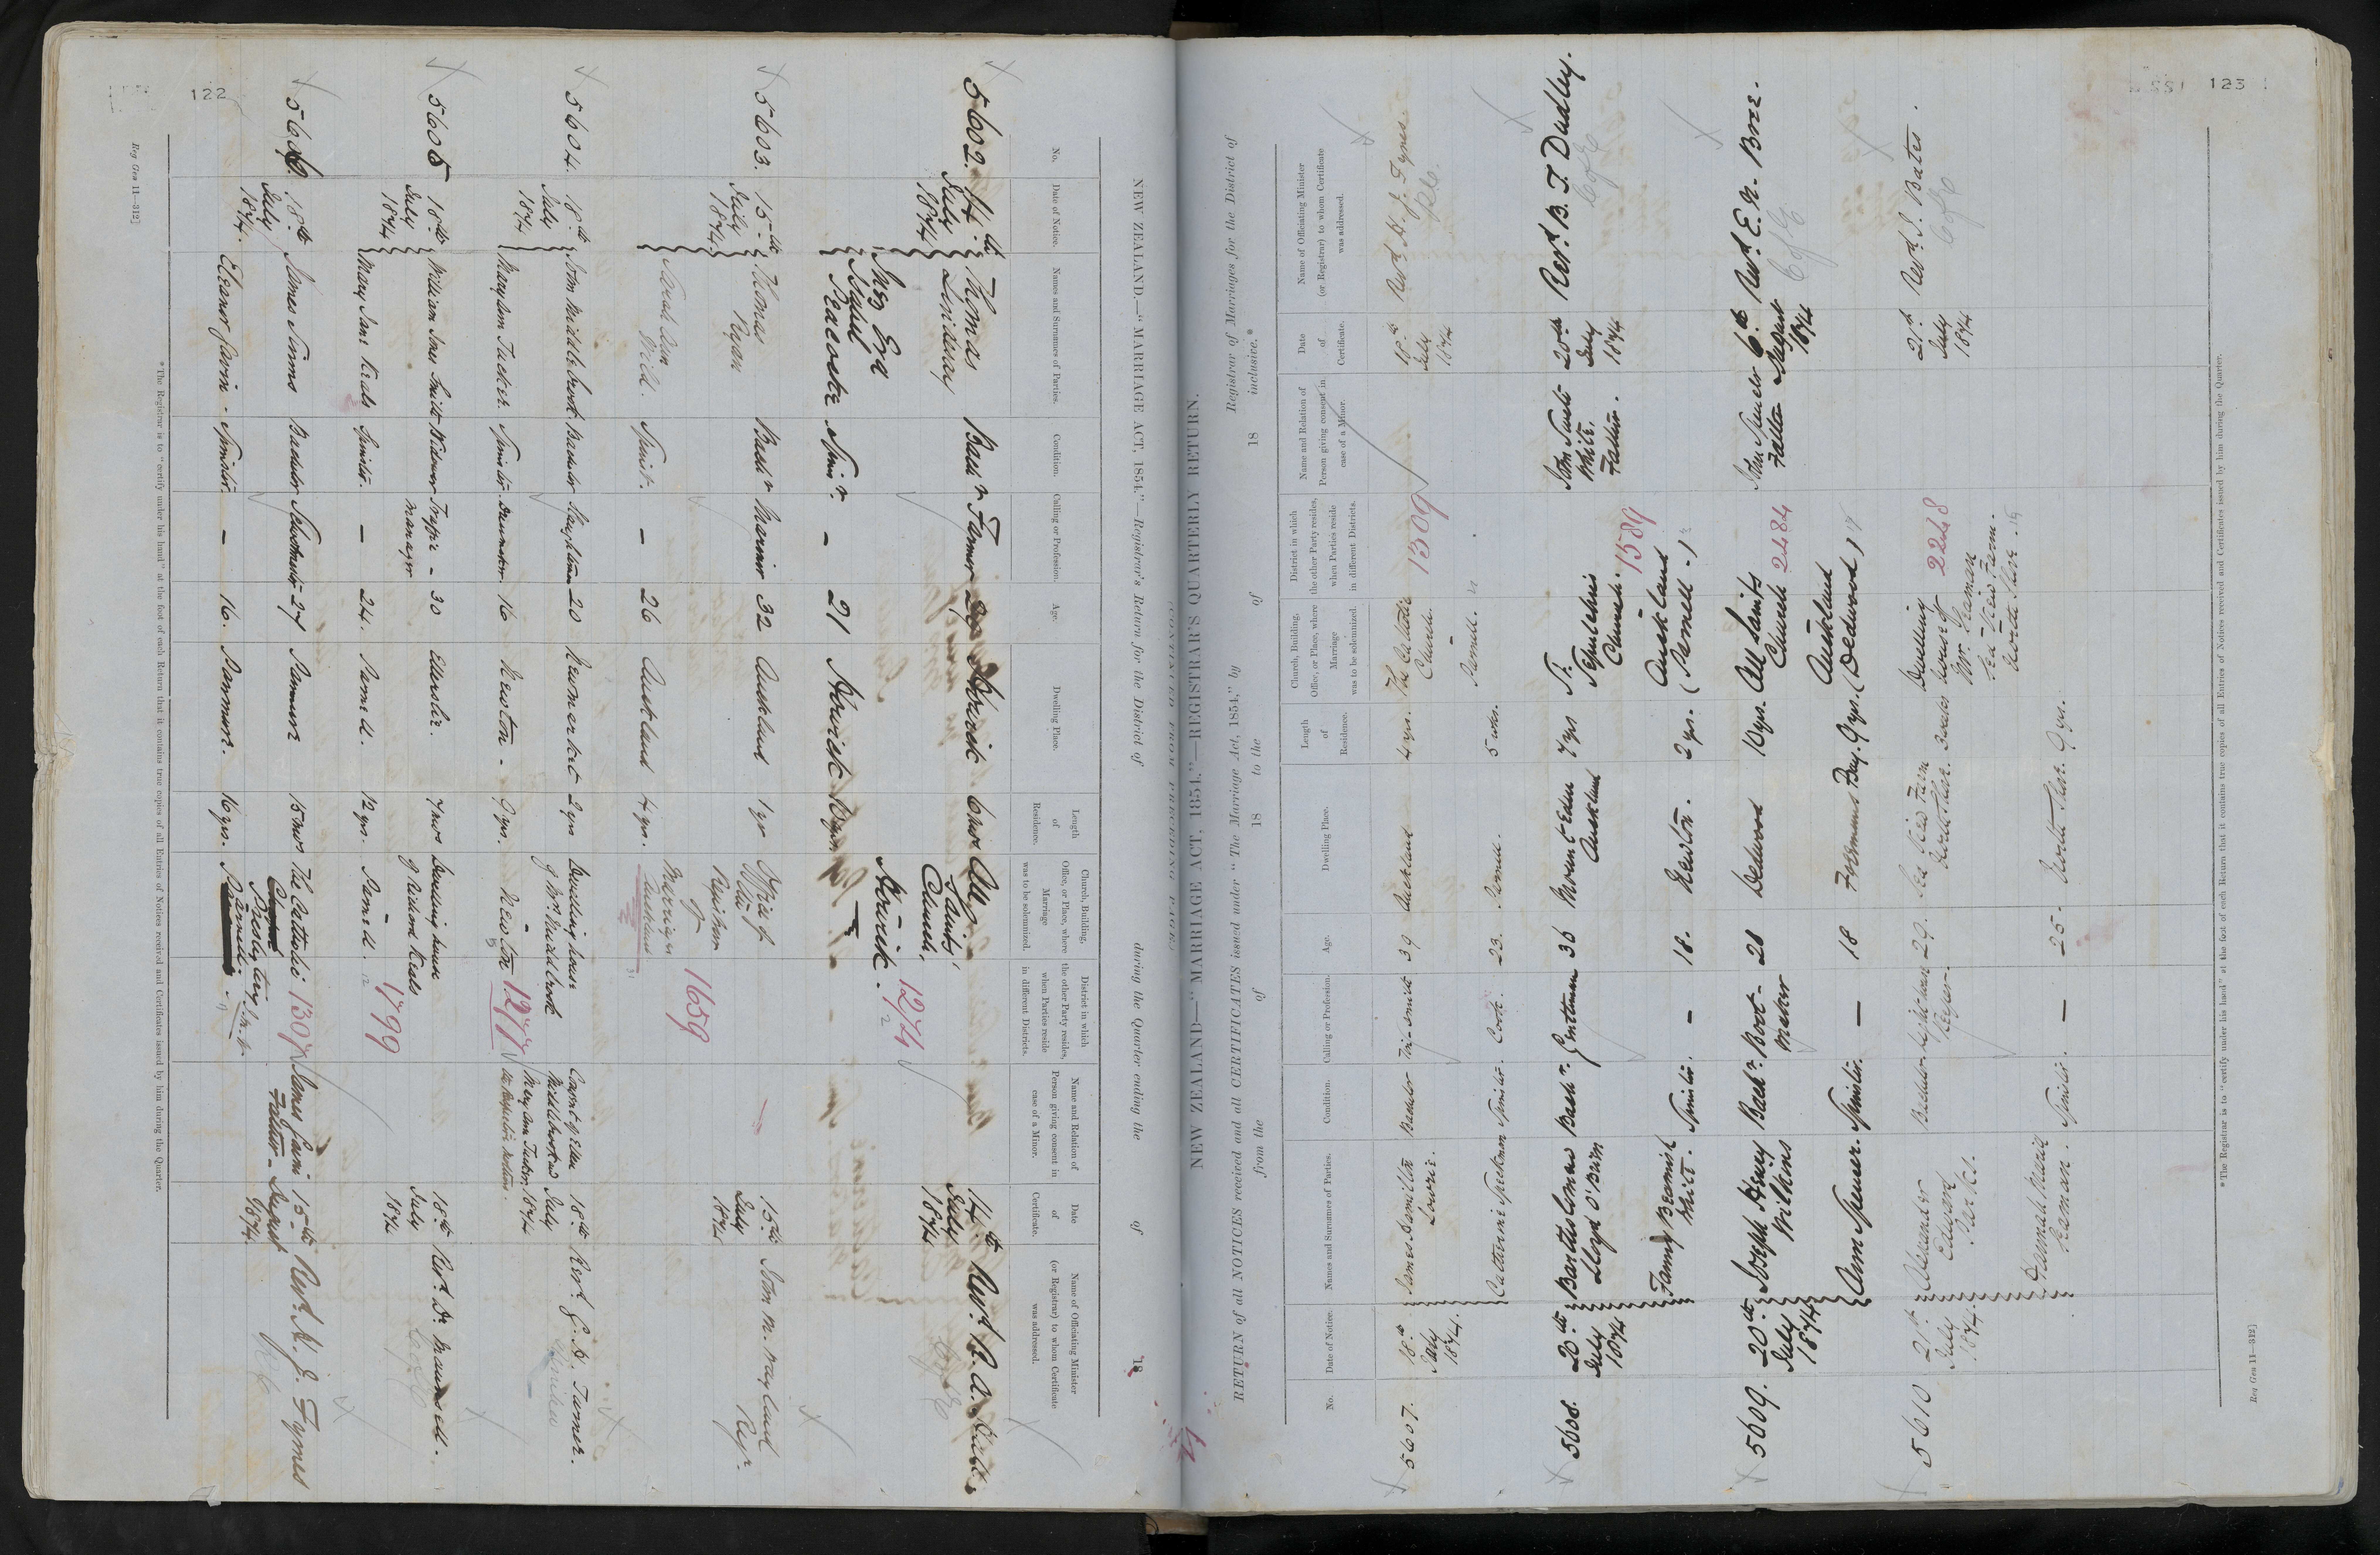 122
NEW ZEALAND.—"MARRIAGE ACT, 1854."—Registrar's Return for the District of during the Quarter ending the of 18
No. Date of Notice. Names and Surnames of Parties. Condition. Calling or Profession. Age. Dwelling Place. Length of Residence. Church, Building, Office, or Place, where Marriage was to be solemnized. District in which the other Party resides, when Parties reside in different Districts. Name and Relation of Person giving consent in case of a Minor. Date of Certificate. Name of Officiating Minister (or Registrar) to whom Certificate was addressed.
5602. 14th July 1874 Thomas Bachr Farmer 29 Howick All Saints' Church, Howick. 1274 14th July 1874 Revd
Isabel Peacocke Spinr. — 21 Howick
5603. 15th July 1874 Thomas Ryan Bachr Mariner 32 Auckland 1 yr Office of the Registrar of Marriages Auckland 1659 15th July 1874 John M. Wayland Regr.
Sarah Ann Spinst. — 26 Auckland 4 yrs.
5604. 18th July 1874 John Middlebrook Bachelor 20 Newmarket 2 yrs Dwelling house of Mrs Middlebrook Newton 1277 Consent of Ellen Middlebrook 18th July 1874 Revd.
Mary Ann Tucker. Spinster. 16 Newton. 9 yrs.
5605 18th July 1874 William Jones Smith Widower Traffic Manager 30 Ellerslie. 7 mos Dwelling house of Richard Keals Parnell. 1799 18th July 1874 Revd. Dr. Maunsell.
Mary Jane Keals Spinster. — 24. Parnell. 12 yrs.
5606. 18th July 1874. James Simms Bachelor 27 Panmure 15 mos The Catholic Presbytery 1307 James Gavin Father. 15th August 1874. Revd. H. J. Fynes
Eleanor Gavin. Spinster. — 16. Panmure. 16 yrs.
*The Registrar is to "certify under his hand" at the foot of each Return that it contains true copies of all Entries of Notices received and Certificates issued by him during the Quarter.
Reg Gen 11—312]
123
NEW ZEALAND—"MARRIAGE ACT, 1854."—REGISTRAR'S QUARTERLY RETURN.
RETURN of all NOTICES received and all CERTIFICATES issued under "The Marriage Act, 1854," by Registrar of Marriages for the District of
from the of 18 to the of 18 inclusive.*
No. Date of Notice. Names and Surnames of Parties. Condition. Calling or Profession. Age. Dwelling Place. Length of Residence. Church, Building, Office, or Place, where Marriage was to be solemnized. District in which the other Party resides, when Parties reside in different Districts. Name and Relation of Person giving consent in case of a Minor. Date of Certificate. Name of Officiating Minister (or Registrar) to whom Certificate was addressed.
5607. 18th July 1874. James Hamilton Lowrie. Bachelor Tin-smith 39 Auckland 4 yrs. The Catholic Church. Parnell. 1309 18th July 1874 Revd. H. J. Fynes. RC
Catherine Speekman Spinster. Cook. 23. Parnell. 5 wks.
5608. 20th July 1874 Bartholomew Lloyd O'Brien Bachr. Gentleman 36 Mount Eden Auckland 7 yrs St. Sepulchre's Church. Auckland (Parnell.) 1589 John Smith White. Father. 20th July 1874 Revd. B. T. Dudley. C of E
Fanny Beamish White. Spinster. — 18. Newton. 2 yrs.
5609. 20th July 1874 Joseph Henry Wilkins Bachr. Boot-maker 28 Dedwood 10 yrs. All Saints Church Auckland (Dedwood) 2484 John Spencer Father 6th August 1874 Revd. E. N. Bree. C of E
Ann Spencer. Spinster. — 18 Freemans Bay. 9 yrs.
5610 21st July 1874. Alexander Edward Parkes. Bachelor Light house Keeper. 29. Sea View Farm North Shore. 3 weeks Dwelling house of Mr. Seaman Sea View Farm. North Shore. 2248 21st July 1874 Revd. J. Bates. C of E
Hannah Maria Seaman. Spinster. — 25. North Shore. 9 yrs.
*The Registrar is to "certify under his hand" at the foot of each Return that it contains true copies of all Entries of Notices received and Certificates issued by him during the Quarter.
Reg Gen 11—312]